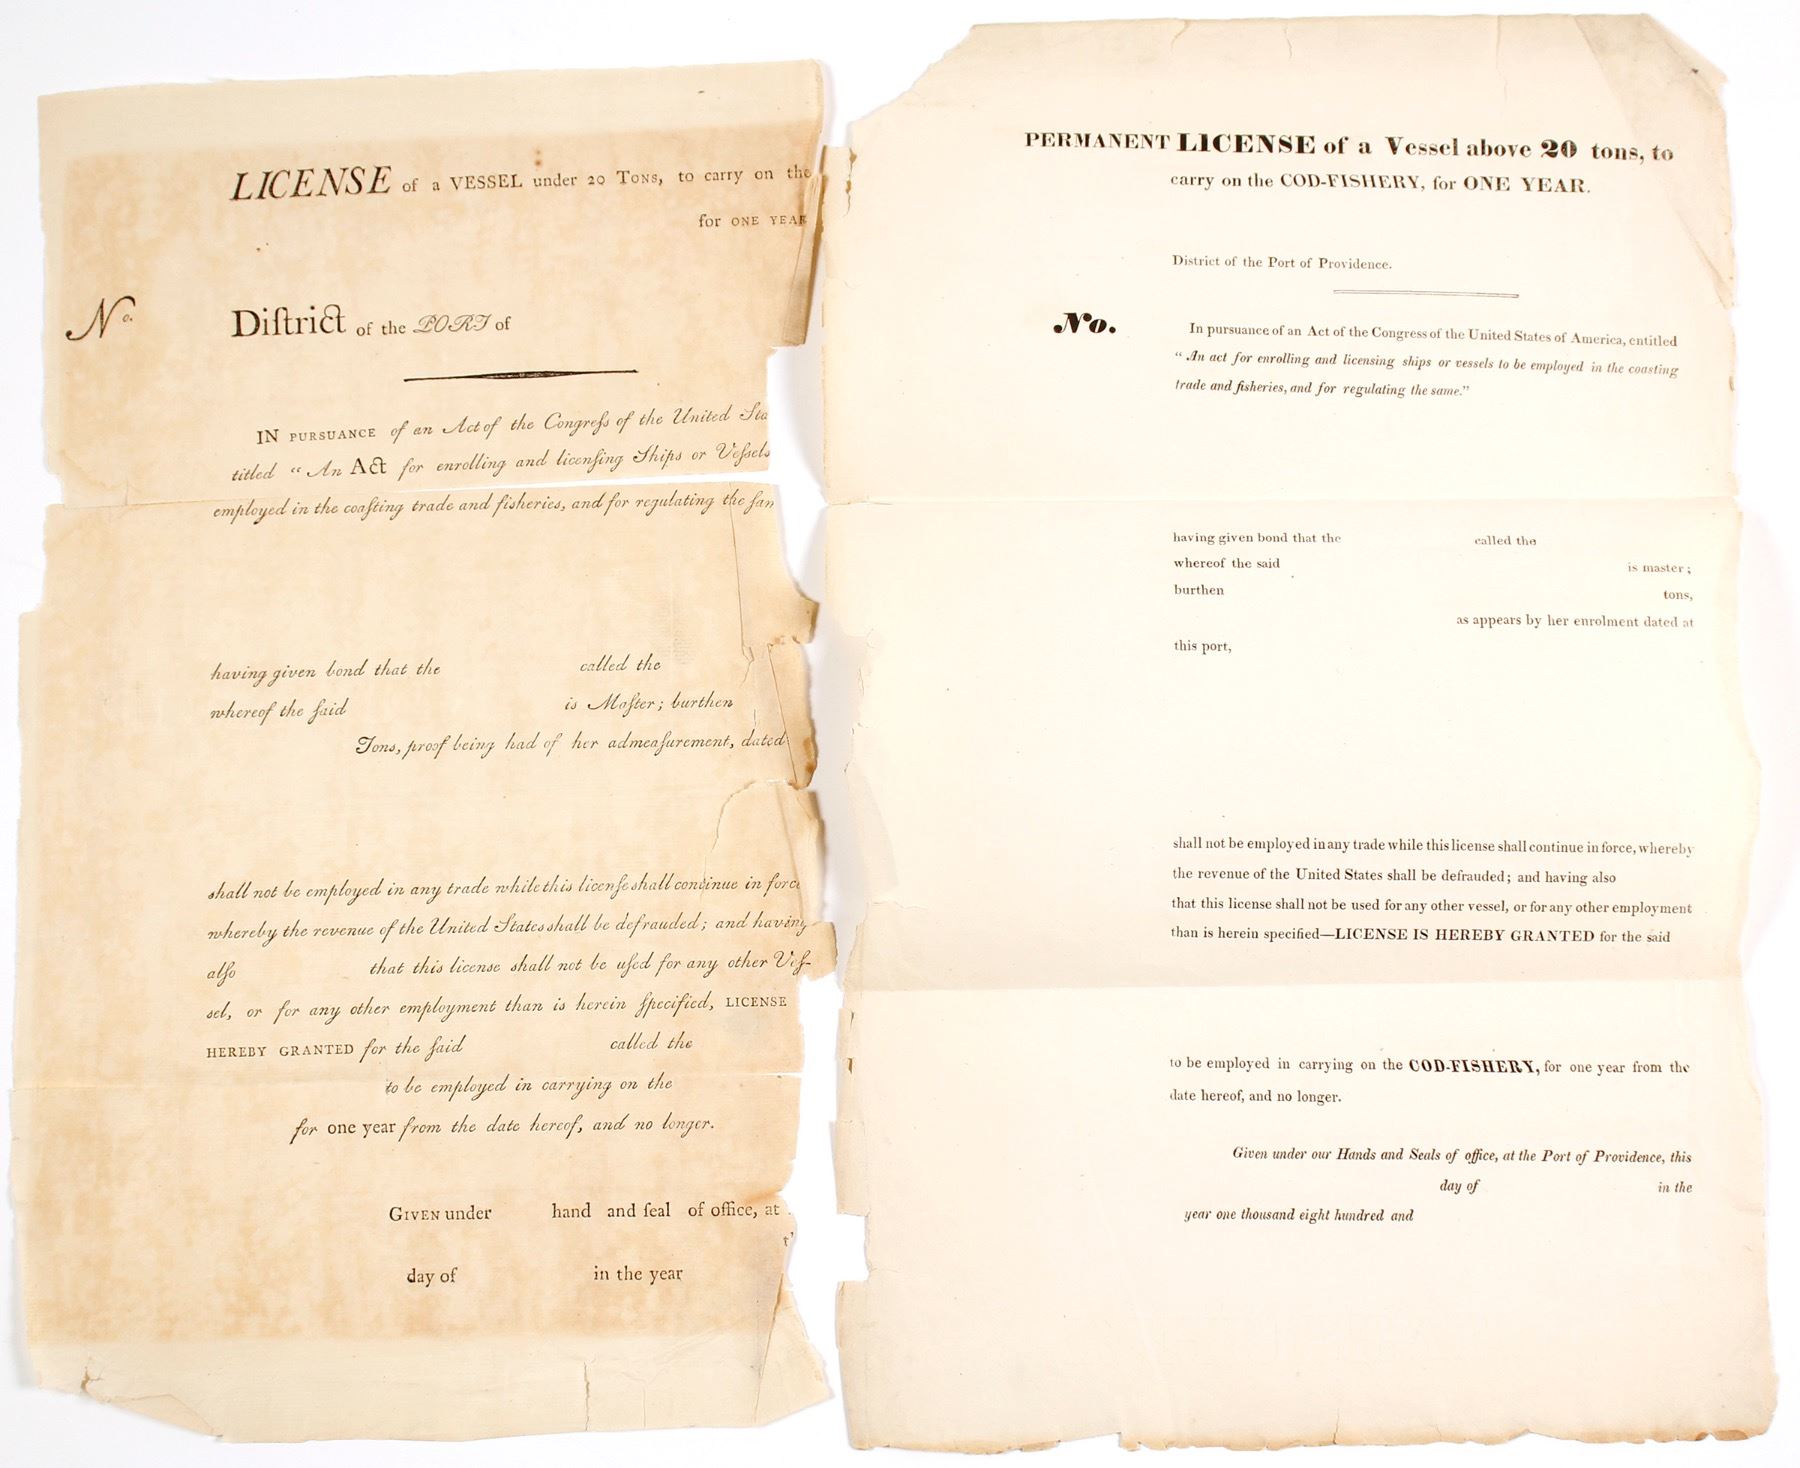 LICENSE of a VESSEL under 20 TONS, to carry on the
for ONE YEAR
No.
Diſtrict of the PORT of
IN PURSUANCE of an Act of the Congreſs of the United Sta
titled “An Act for enrolling and licenſing Ships or Veſsels
employed in the coaſting trade and fiſheries, and for regulating the ſam
having given bond that the called the
whereof the ſaid is Maſter; burthen
Tons, proof being had of her admeaſurement, dated
shall not be employed in any trade while this licenſe shall continue in force
whereby the revenue of the United States shall be defrauded; and having
alſo that this license shall not be uſed for any other Veſ-
sel, or for any other employment than is herein ſpecified, LICENSE
HEREBY GRANTED for the ſaid called the
to be employed in carrying on the
for one year from the date hereof, and no longer.
GIVEN under hand and ſeal of office, at
day of in the year
PERMANENT LICENSE of a Vessel above 20 tons, to
carry on the COD-FISHERY, for ONE YEAR.
District of the Port of Providence.
No.
In pursuance of an Act of the Congress of the United States of America, entitled
“An act for enrolling and licensing ships or vessels to be employed in the coasting
trade and fisheries, and for regulating the same.”
having given bond that the called the
whereof the said is master;
burthen tons,
as appears by her enrolment dated at
this port,
shall not be employed in any trade while this license shall continue in force, whereby
the revenue of the United States shall be defrauded; and having also
that this license shall not be used for any other vessel, or for any other employment
than is herein specified—LICENSE IS HEREBY GRANTED for the said
to be employed in carrying on the COD-FISHERY, for one year from the
date hereof, and no longer.
Given under our Hands and Seals of office, at the Port of Providence, this
day of in the
year one thousand eight hundred and